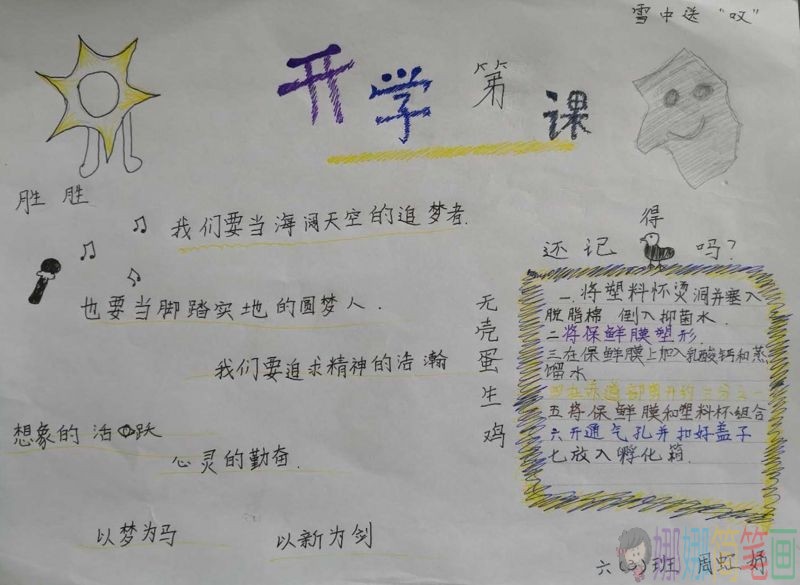 雪中送“叹”
开学第一课
胜 胜
我们要当海阔天空的追梦者.
也要当脚踏实地的圆梦人.
我们要追求精神的浩瀚
想象的活跃
心灵的勤奋.
以梦为马
以新为剑
无壳蛋生鸡
还记得 吗?
一.将塑料怀烫洞并塞入
脱脂棉 倒入抑菌水.
二将保鲜膜塑形.
三在保鲜膜上加入乳酸钙和蒸
馏水
四在赤道部剪开约三分之一
五将保鲜膜和塑料杯组合
六开通气孔并扣好盖子
七放入孵化箱.
六(3)班 周虹妤
娜娜简笔画